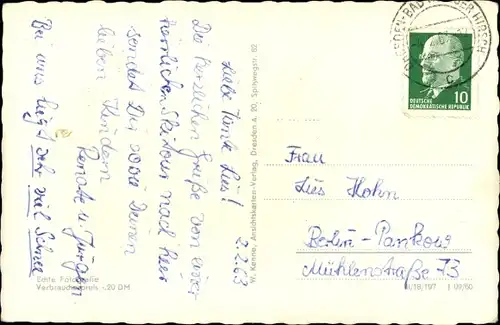 2.2.63
Liebe Tante Lies!
Die herzlichsten Grüße von einer
herrlichen Skitour nach hier
sendet Dir sowie Deinen
lieben Kindern
Renate u. Jürgen
Bei uns liegt sehr viel Schnee
Echte Fotografie
Verbraucherpreis -.20 DM
W. Kenne, Ansichtskarten-Verlag, Dresden A. 20, Spitzwegstr. 62
HIRSCH
10
DEUTSCHE
DEMOKRATISCHE REPUBLIK
Frau
Lies Hohn
Berlin-Pankow
Mühlenstraße 73
III/18/197